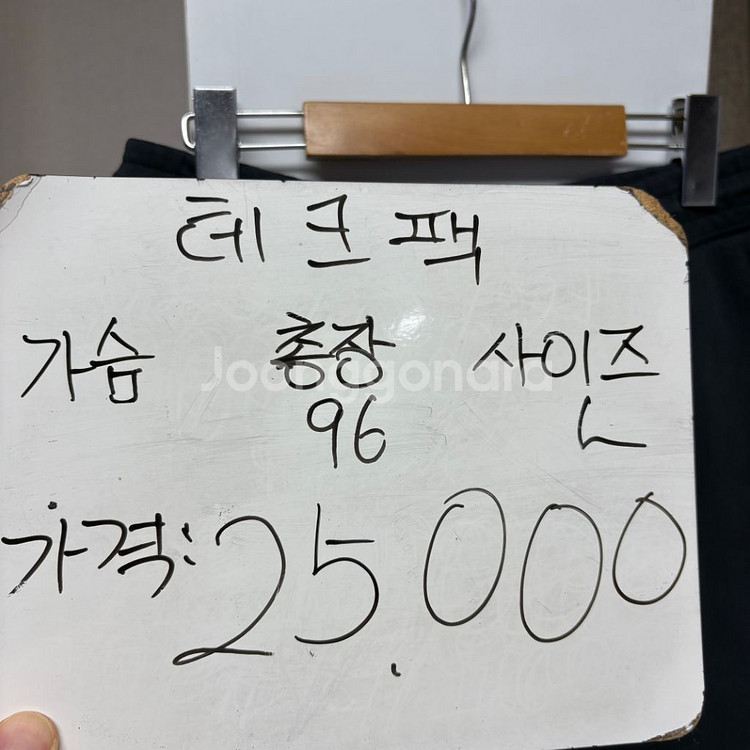 테크팩
가슴 총장 사이즈
96 L
가격: 25.000
Joonggonara